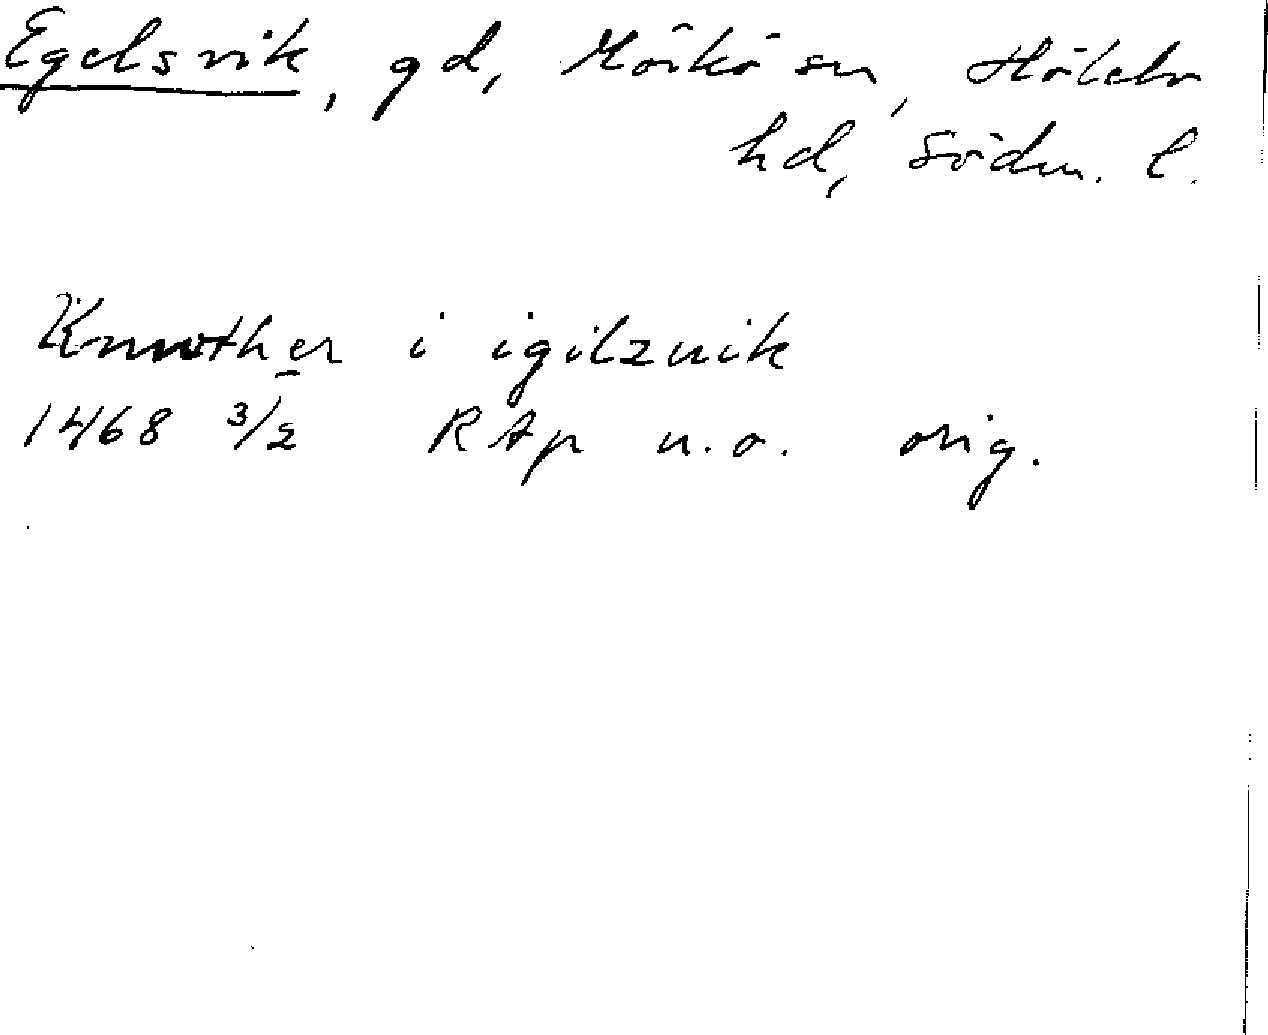 Egelsvik, gd, Mörkö sn, Hölebo
hd, Södm. l.
Knwther i igilzuik
1468 3/2 RAp n.o. orig.